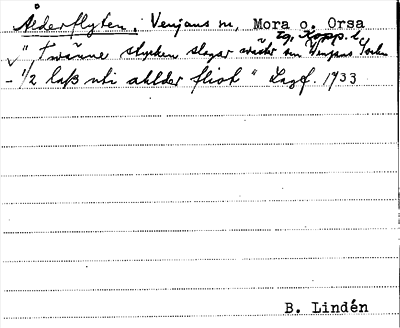 Ålderflyten, Venjans sn, Mora o. Orsa
tg. Kopp. l.
" Twänne stycken slogar wäster om Wenjans
- 1/2 laß uti ahlder fliot " Lagf. 1733
B. Lindén